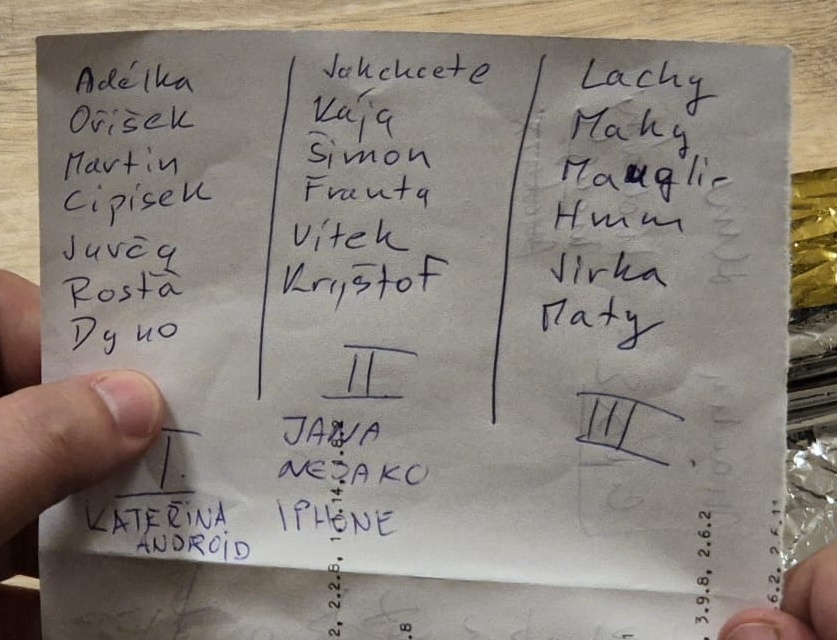 Adélka
Oříšek
Martin
Cipísek
Juvča
Rosťa
Dyno
I.
KATEŘINA
ANDROID
Jakchcete
Kája
Šimon
Franta
Vítek
Kryštof
II
JANA
NEJAKO
IPHONE
Lachy
Maky
Mauglie
Hmm
Jirka
Maty
III
3.9.8, 2.6.2